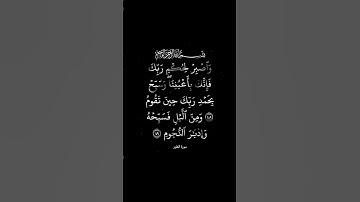 بسم الله الرحمن الرحيم
وَٱصْبِرْ لِحُكْمِ رَبِّكَ
فَإِنَّكَ بِأَعْيُنِنَا وَسَبِّحْ
بِحَمْدِ رَبِّكَ حِينَ تَقُومُ
٤٨ وَمِنَ ٱلَّيْلِ فَسَبِّحْهُ
وَإِدْبَٰرَ ٱلنُّجُومِ ٤٩
سورة الطور